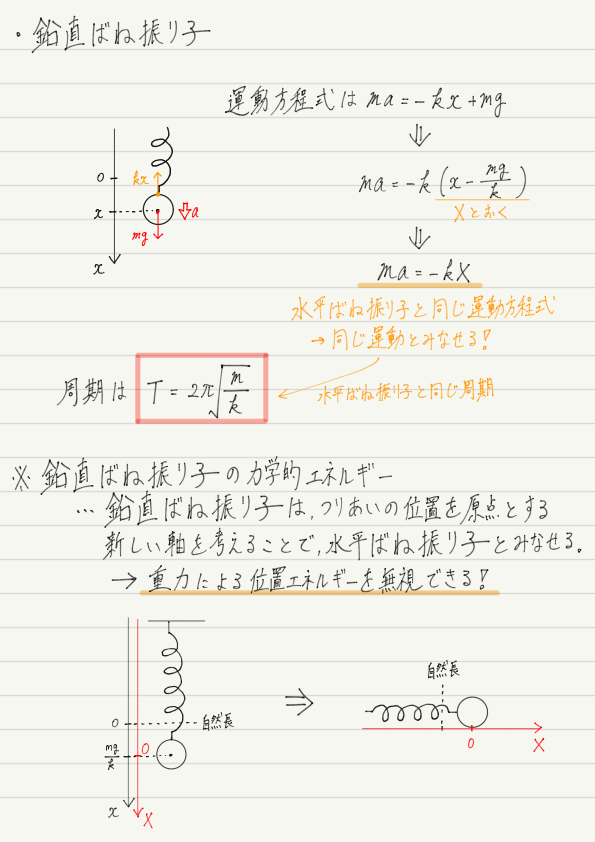 ・鉛直ばね振り子
運動方程式は ma = -kx + mg
⇓
0
kx
ma = -k(x - mg/k)
x
a
Xとおく
mg
⇓
x
ma = -kX
水平ばね振り子と同じ運動方程式
→ 同じ運動とみなせる!
周期は T = 2π√(m/k)
水平ばね振り子と同じ周期
※ 鉛直ばね振り子の力学的エネルギー
… 鉛直ばね振り子は,つりあいの位置を原点とする
新しい軸を考えることで,水平ばね振り子とみなせる。
→ 重力による位置エネルギーを無視できる!
自然長
⇒
0
自然長
mg/k
0
0
X
x
X